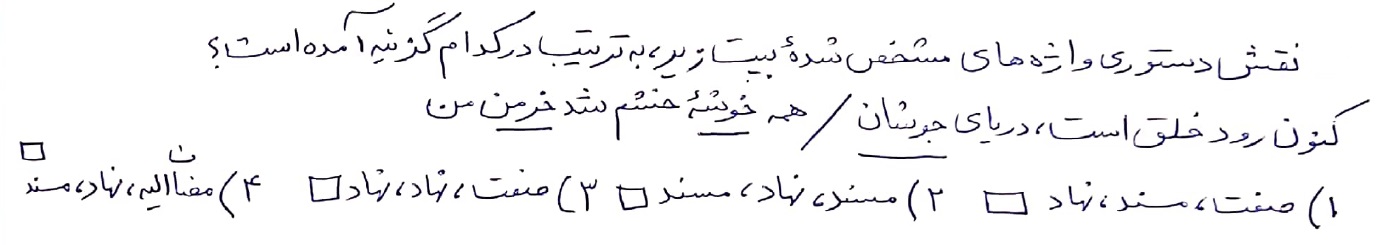 نقش دستوری واژه‌های مشخص شدهٔ بیت زیر، به ترتیب در کدام گزینه آمده است؟
کنون رود خلق است، دریای جوشان / همه خوشهٔ خشم شد خرمن من
۱) صفت، مسند، نهاد □ ۲) مسند، نهاد، مسند □ ۳) صفت، نهاد، نهاد □ ۴) مضاف‌الیه، نهاد، مسند □